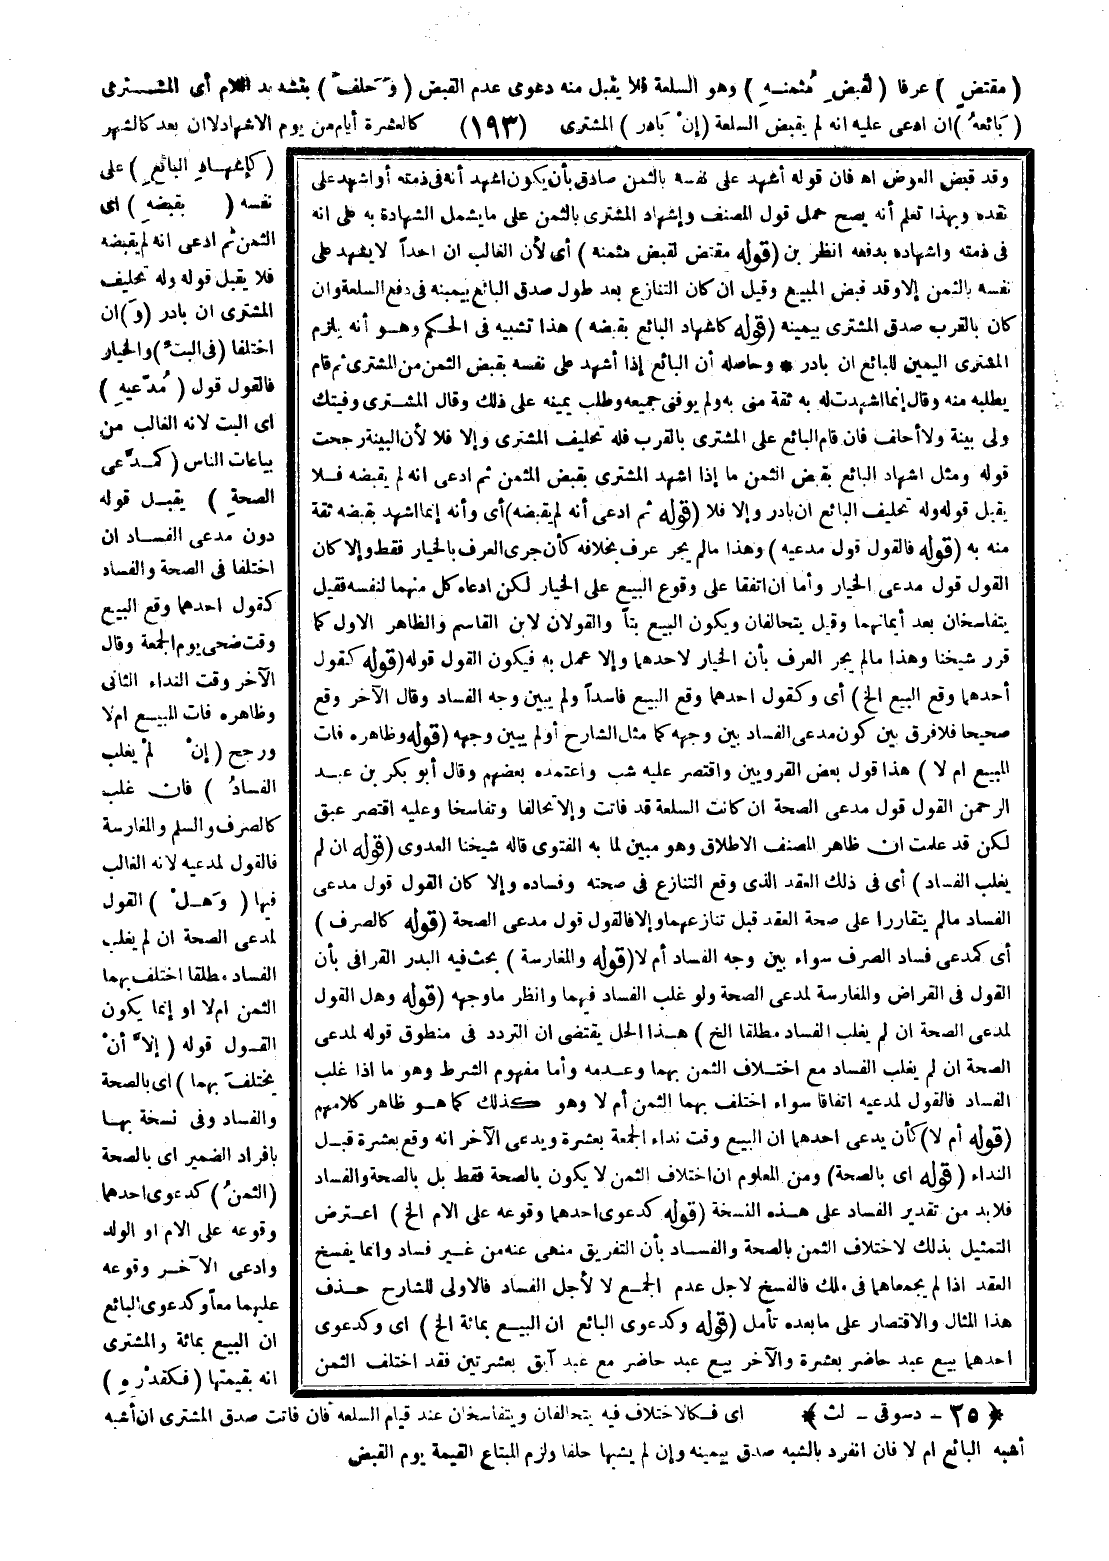 ( مقتض ) عرفا ( لقبض مُثمنه ) وهو السلعة فلا يقبل منه دعوى عدم القبض ( وحلف ) بتشديد اللام أى المشترى
( بَائعهُ ) ان ادعى عليه انه لم يقبض السلعة (إنْ بَادر ) المشترى (١٩٣) كالعشرة أيام من يوم الاشهاد لا ان بعد كالشهر
( كإشهادِ البائعِ ) على
نفسه ( بقبضهِ ) اى
الثمن ثم ادعى انه لم يقبضه
فلا يقبل قوله وله تحليف
المشترى ان بادر (وَ) ان
اختلفا (فى البتِّ) والخيار
فالقول قول ( مُدّعيهِ )
اى البت لانه الغالب من
بياعات الناس ( كمدَّعى
الصحةِ ) يقبل قوله
دون مدعى الفساد ان
اختلفا فى الصحة والفساد
كقول احدهما وقع البيع
وقت ضحى يوم الجمعة وقال
الآخر وقت النداء الثانى
وظاهره فات المبيع ام لا
ورجح ( إنْ لمْ يغلب
الفسادُ ) فان غلب
كالصرف والسلم والمغارسة
فالقول لمدعيه لانه الغالب
فيها ( وَهلْ ) القول
لمدعى الصحة ان لم يغلب
الفساد مطلقا اختلف بهما
الثمن ام لا او إنما يكون
القول قوله ( إلاَّ أنْ
يختلفَ بهما ) اى بالصحة
والفساد وفى نسخة بها
بافراد الضمير اى بالصحة
(الثمنُ) كدعوى احدهما
وقوعه على الام او الولد
وادعى الآخر وقوعه
عليهما معاً وكدعوى البائع
ان البيع بمائة والمشترى
انه بقيمتها ( فكقدْرهِ )
وقد قبض العوض اه فان قوله أشهد على نفسه بالثمن صادق بأن يكون اشهد أنه فى ذمته أو اشهد على
نقده وبهذا تعلم أنه يصح حمل قول المصنف وإشهاد المشترى بالثمن على ما يشمل الشهادة به على انه
فى ذمته واشهاده بدفعه انظر بن (قوله مقتض لقبض مثمنه ) أى لأن الغالب ان احداً لا يشهد على
نفسه بالثمن إلا وقد قبض المبيع وقيل ان كان التنازع بعد طول صدق البائع بيمينه فى دفع السلعة وان
كان بالقرب صدق المشترى بيمينه (قوله كاشهاد البائع بقبضه ) هذا تشبيه فى الحكم وهو أنه يلزم
المشترى اليمين للبائع ان بادر * وحاصله أن البائع إذا أشهد على نفسه بقبض الثمن من المشترى ثم قام
يطلبه منه وقال إنما اشهدت له به ثقة منى به ولم يوفنى جميعه وطلب يمينه على ذلك وقال المشترى وفيتك
ولى بينة ولا أحلف فان قام البائع على المشترى بالقرب فله تحليف المشترى وإلا فلا لأن البينة رجحت
قوله ومثل اشهاد البائع بقبض الثمن ما إذا اشهد المشترى بقبض المثمن ثم ادعى انه لم يقبضه فلا
يقبل قوله وله تحليف البائع ان بادر وإلا فلا (قوله ثم ادعى أنه لم يقبضه) أى وأنه إنما اشهد بقبضه ثقة
منه به (قوله فالقول قول مدعيه ) وهذا مالم يجر عرف بخلافه كأن جرى العرف بالخيار فقط وإلا كان
القول قول مدعى الخيار وأما ان اتفقا على وقوع البيع على الخيار لكن ادعاه كل منهما لنفسه فقيل
يتفاسخان بعد أيمانهما وقيل يتحالفان ويكون البيع بتاً والقولان لابن القاسم والظاهر الاول كما
قرر شيخنا وهذا مالم يجر العرف بأن الخيار لاحدهما وإلا عمل به فيكون القول قوله (قوله كقول
أحدهما وقع البيع الخ) أى وكقول احدهما وقع البيع فاسداً ولم يبين وجه الفساد وقال الآخر وقع
صحيحا فلا فرق بين كون مدعى الفساد بين وجهه كما مثل الشارح أو لم يبين وجهه (قوله وظاهره فات
المبيع ام لا ) هذا قول بعض القرويين واقتصر عليه شب واعتمده بعضهم وقال أبو بكر بن عبد
الرحمن القول قول مدعى الصحة ان كانت السلعة قد فاتت وإلا تحالفا وتفاسخا وعليه اقتصر عبق
لكن قد علمت ان ظاهر المصنف الاطلاق وهو مبين لما به الفتوى قاله شيخنا العدوى (قوله ان لم
يغلب الفساد ) أى فى ذلك العقد الذى وقع التنازع فى صحته وفساده وإلا كان القول قول مدعى
الفساد مالم يتقاررا على صحة العقد قبل تنازعهما وإلا فالقول قول مدعى الصحة (قوله كالصرف )
أى كمدعى فساد الصرف سواء بين وجه الفساد أم لا (قوله والمغارسة ) بحث فيه البدر القرافى بأن
القول فى القراض والمغارسة لمدعى الصحة ولو غلب الفساد فيهما وانظر ما وجهه (قوله وهل القول
لمدعى الصحة ان لم يغلب الفساد مطلقا الخ ) هذا الحل يقتضى ان التردد فى منطوق قوله لمدعى
الصحة ان لم يغلب الفساد مع اختلاف الثمن بهما وعدمه وأما مفهوم الشرط وهو ما اذا غلب
الفساد فالقول لمدعيه اتفاقا سواء اختلف بهما الثمن أم لا وهو كذلك كما هو ظاهر كلامهم
(قوله أم لا) كأن يدعى احدهما ان البيع وقت نداء الجمعة بعشرة ويدعى الآخر انه وقع بعشرة قبل
النداء ( قوله اى بالصحة) ومن المعلوم ان اختلاف الثمن لا يكون بالصحة فقط بل بالصحة والفساد
فلا بد من تقدير الفساد على هذه النسخة (قوله كدعوى احدهما وقوعه على الام الخ ) اعترض
التمثيل بذلك لاختلاف الثمن بالصحة والفساد بأن التفريق منهى عنه من غير فساد وانما يفسخ
العقد اذا لم يجمعاهما فى ملك فالفسخ لاجل عدم الجمع لا لأجل الفساد فالاولى للشارح حذف
هذا المثال والاقتصار على ما بعده تأمل (قوله وكدعوى البائع ان البيع بمائة الخ ) اى وكدعوى
احدهما بيع عبد حاضر بعشرة والآخر بيع عبد حاضر مع عبد آبق بعشرتين فقد اختلف الثمن
﴿ ٢٥ - دسوقى - لث ﴾ اى فكالاختلاف فيه يتحالفان ويتفاسخان عند قيام السلعة فان فاتت صدق المشترى ان أشبه
أشبه البائع ام لا فان انفرد بالشبه صدق بيمينه وإن لم يشبها حلفا ولزم المبتاع القيمة يوم القبض